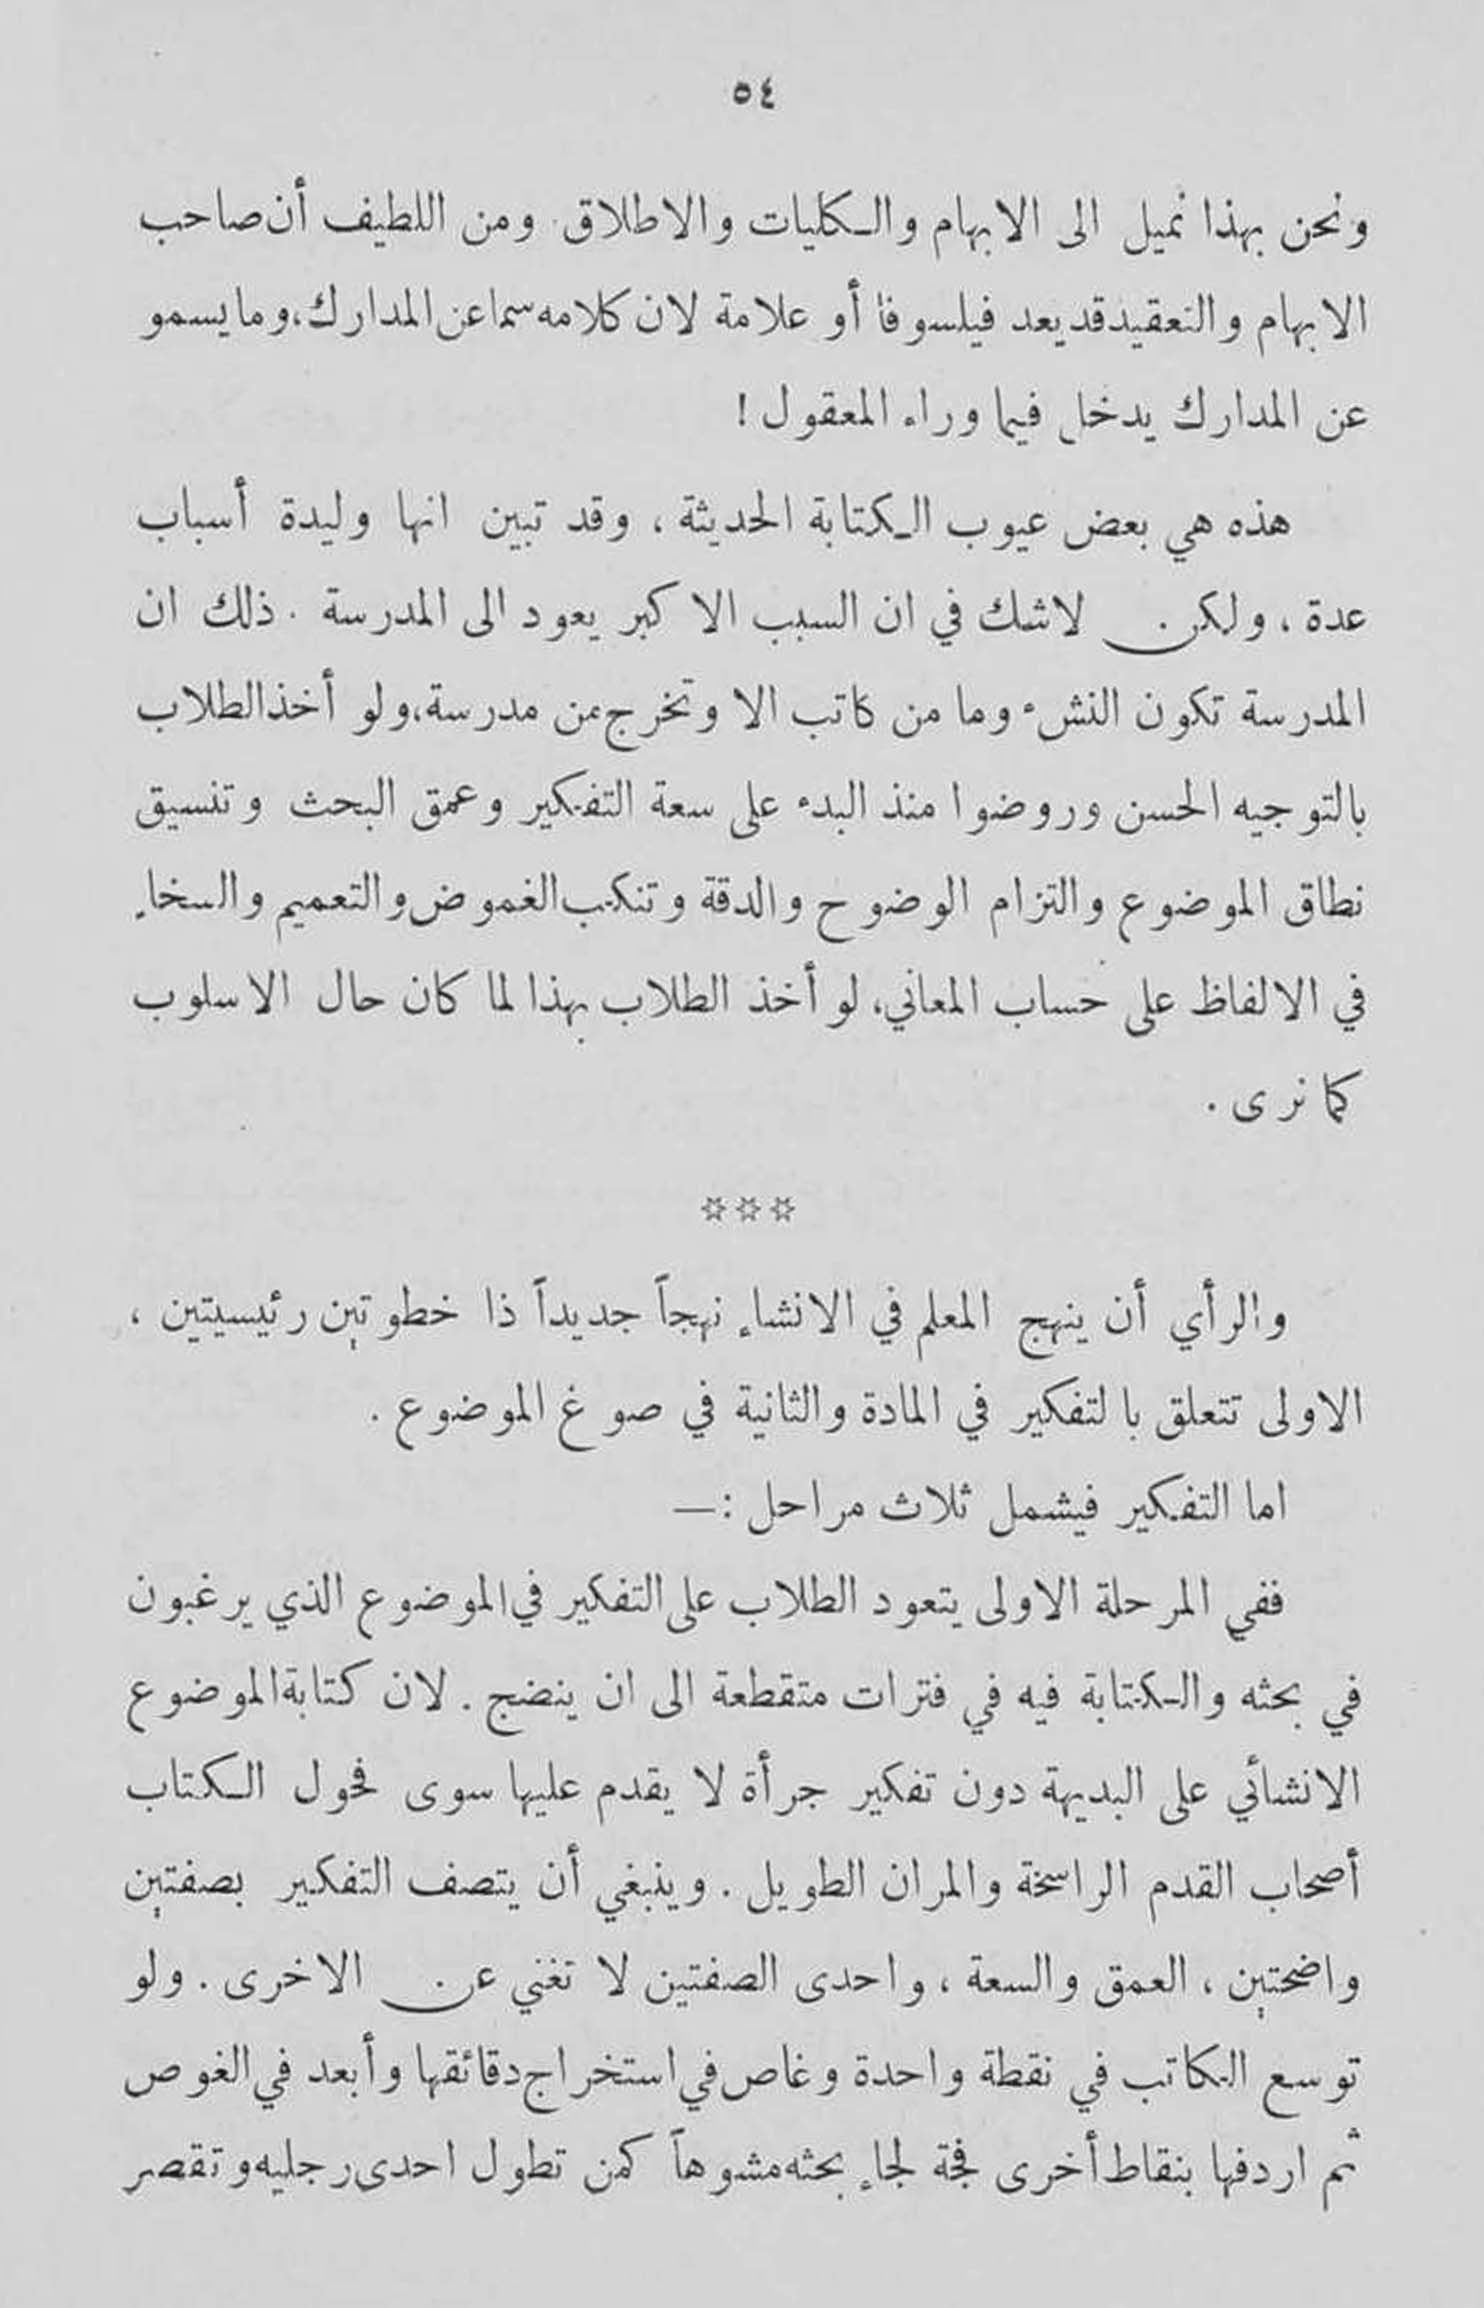 ٥٤
ونحن بهذا نميل الى الابهام والكليات والاطلاق . ومن اللطيف أن صاحب
الابهام والتعقيد قد يعد فيلسوفاً أو علامة لان كلامه سما عن المدارك، وما يسمو
عن المدارك يدخل فيما وراء المعقول !
هذه هي بعض عيوب الكتابة الحديثة ، وقد تبين انها وليدة أسباب
عدة ، ولكن لاشك في ان السبب الاكبر يعود الى المدرسة . ذلك ان
المدرسة تكون النشء وما من كاتب الا وتخرج من مدرسة، ولو أخذ الطلاب
بالتوجيه الحسن وروضوا منذ البدء على سعة التفكير وعمق البحث وتنسيق
نطاق الموضوع والتزام الوضوح والدقة وتنكب الغموض والتعميم والسخاء
في الالفاظ على حساب المعاني، لو أخذ الطلاب بهذا لما كان حال الاسلوب
كما نرى .
***
والرأي أن ينهج المعلم في الانشاء نهجاً جديداً ذا خطوتين رئيسيتين ،
الاولى تتعلق بالتفكير في المادة والثانية في صوغ الموضوع .
اما التفكير فيشمل ثلاث مراحل :—
ففي المرحلة الاولى يتعود الطلاب على التفكير في الموضوع الذي يرغبون
في بحثه والكتابة فيه في فترات متقطعة الى ان ينضج . لان كتابة الموضوع
الانشائي على البديهة دون تفكير جرأة لا يقدم عليها سوى فحول الكتاب
أصحاب القدم الراسخة والمران الطويل . وينبغي أن يتصف التفكير بصفتين
واضحتين ، العمق والسعة ، واحدى الصفتين لا تغني عن الاخرى . ولو
توسع الكاتب في نقطة واحدة وغاص في استخراج دقائقها وأبعد في الغوص
ثم اردفها بنقاط أخرى فجة لجاء بحثه مشوهاً كمن تطول احدى رجليه وتقصر